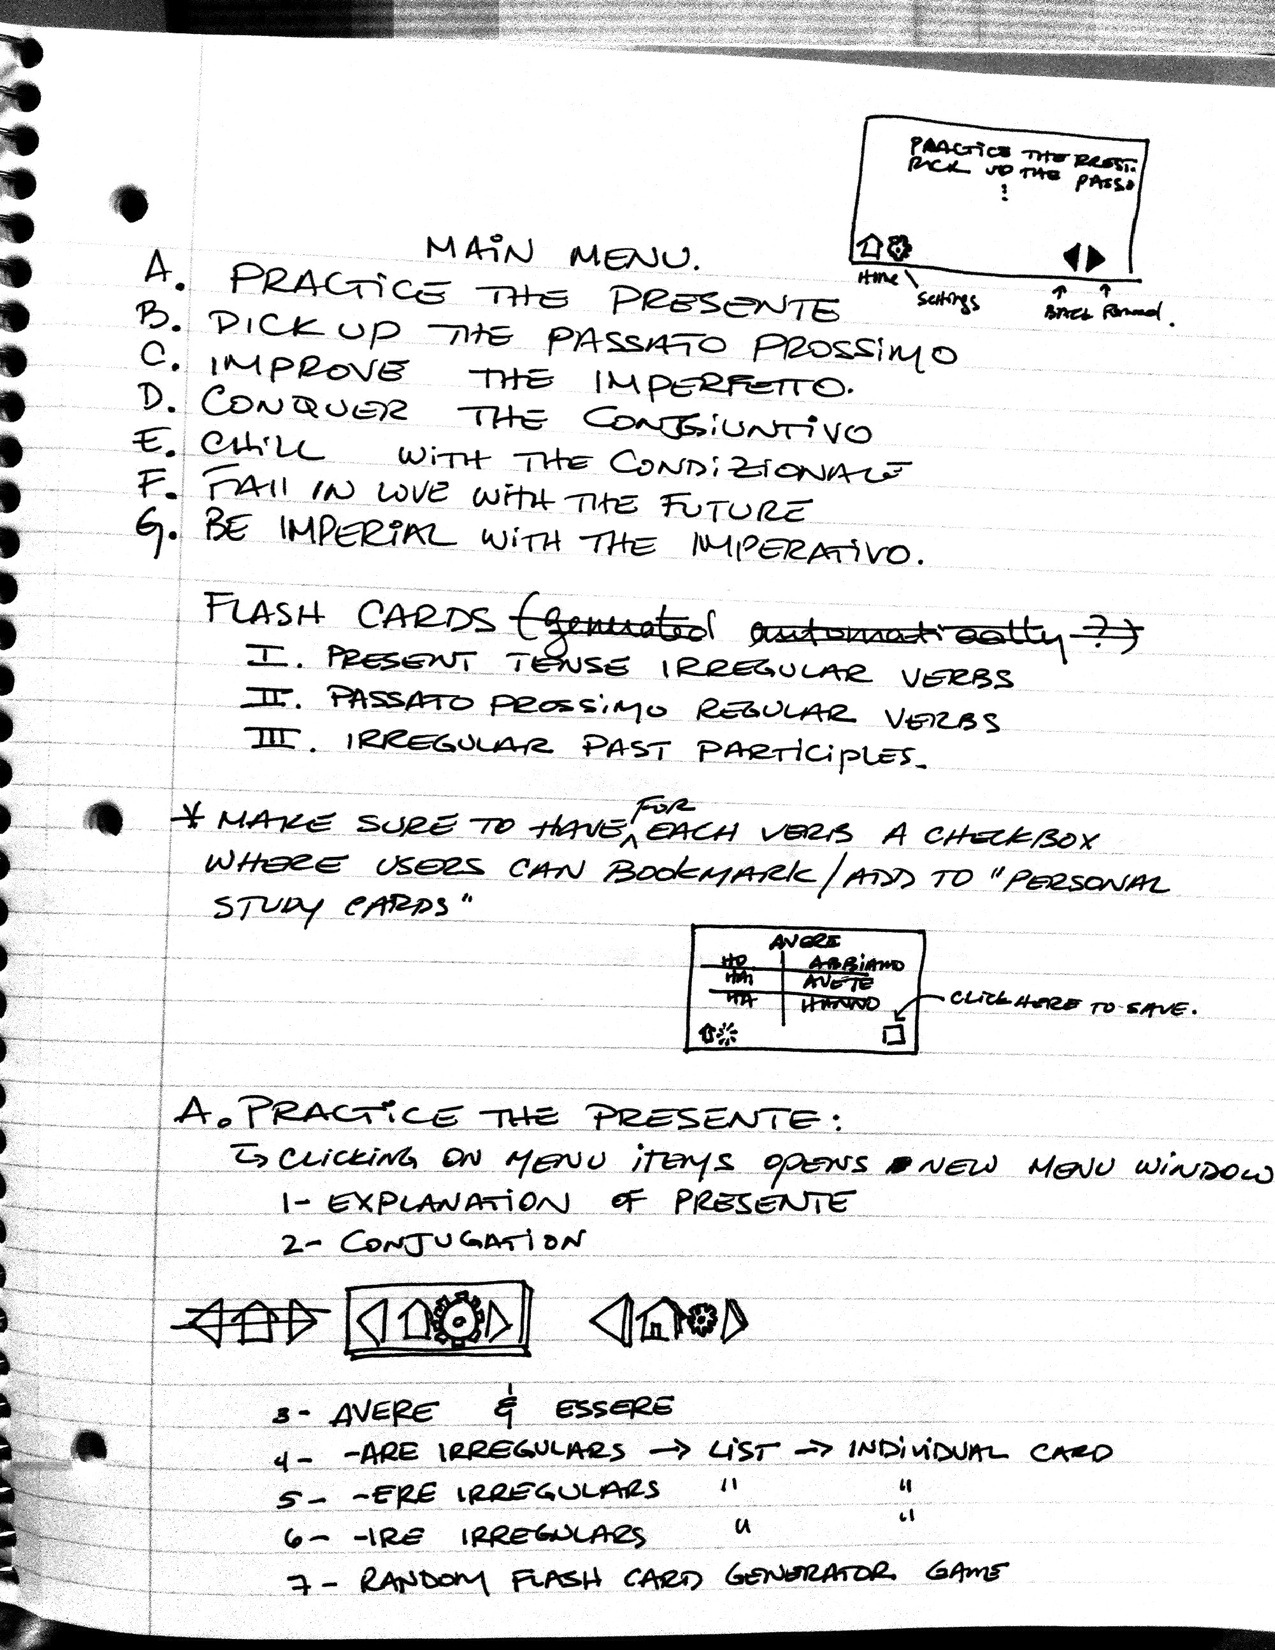 PRACTICE THE PREST.
PICK UP THE PASSO
Home
Settings
BACK Forward.
MAIN MENU.
A. PRACTICE THE PRESENTE
B. PICK UP THE PASSATO PROSSIMO
C. IMPROVE THE IMPERFETTO.
D. CONQUER THE CONGIUNTIVO
E. CHILL WITH THE CONDIZIONALE
F. FAll IN LOVE WITH THE FUTURE
G. BE IMPERIAL WITH THE IMPERATIVO.
FLASH CARDS (generated automatically?)
I. PRESENT TENSE IRREGULAR VERBS
II. PASSATO PROSSIMO REGULAR VERBS
III. IRREGULAR PAST PARTICIPLES.
* MAKE SURE TO HAVE FOR EACH VERB A CHECKBOX
WHERE USERS CAN BOOKMARK/ADD TO "PERSONAL
STUDY CARDS"
AVERE
HO ABBIAMO
HAI AVETE
HA HANNO
CLICK HERE TO SAVE.
A. PRACTICE THE PRESENTE:
↳ CLICKING ON MENU ITEMS OPENS NEW MENU WINDOW
1- EXPLANATION OF PRESENTE
2- CONJUGATION
3- AVERE & ESSERE
4- -ARE IRREGULARS → LIST → INDIVIDUAL CARD
5- -ERE IRREGULARS " "
6- -IRE IRREGULARS " "
7- RANDOM FLASH CARD GENERATOR GAME